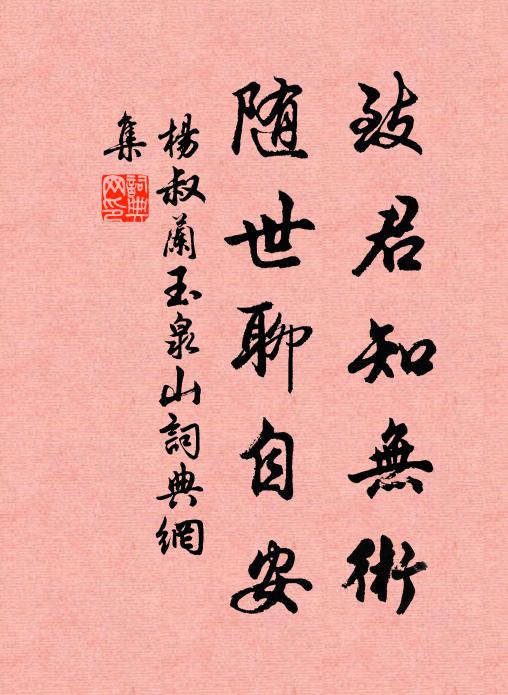 致君知無術
随世聊自安
楊叔蘭玉泉山詞典網
集
詞典
网印